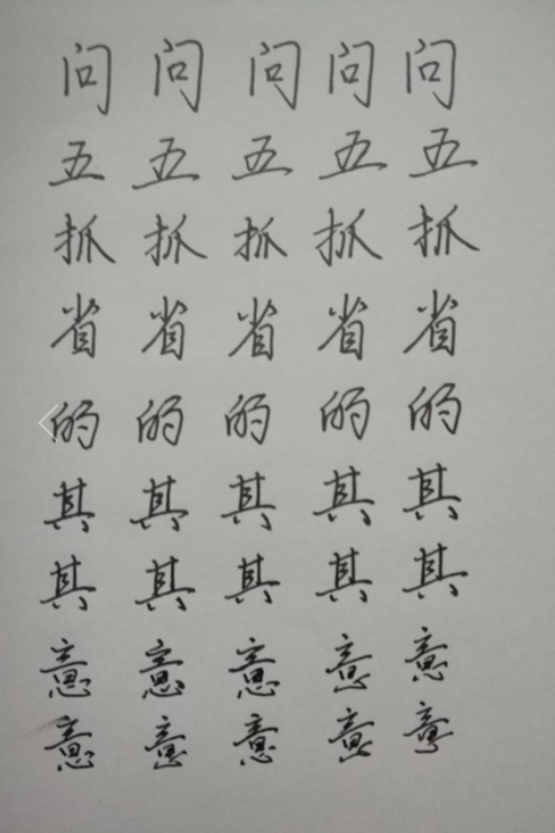 问 问 问 问 问
五 五 五 五 五
抓 抓 抓 抓 抓
省 省 省 省 省
的 的 的 的 的
其 其 其 其 其
其 其 其 其 其
意 意 意 意 意
意 意 意 意 意